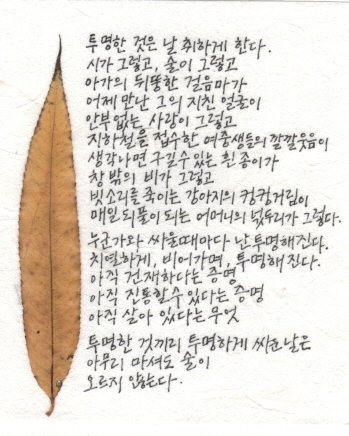 투명한 것은 날 취하게 한다.
시가 그렇고, 술이 그렇고
아가의 뒤뚱한 걸음마가
어제 만난 그의 지친 얼굴이
안부없는 사랑이 그렇고
지하철을 접수한 여중생들의 깔깔웃음이
생각나면 구길수 있는 흰 종이가
창밖의 비가 그렇고
빗소리를 죽이는 강아지의 컹컹거림이
매일 되풀이 되는 어머니의 넋두리가 그렇다.
누군가와 싸울때마다 난 투명해진다.
치열하게, 비어가며, 투명해진다.
아직 건재하다는 증명
아직 진통할수 있다는 증명
아직 살아 있다는 무엇
투명한 것끼리 투명하게 싸운 날은
아무리 마셔도 술이
오르지 않는다.